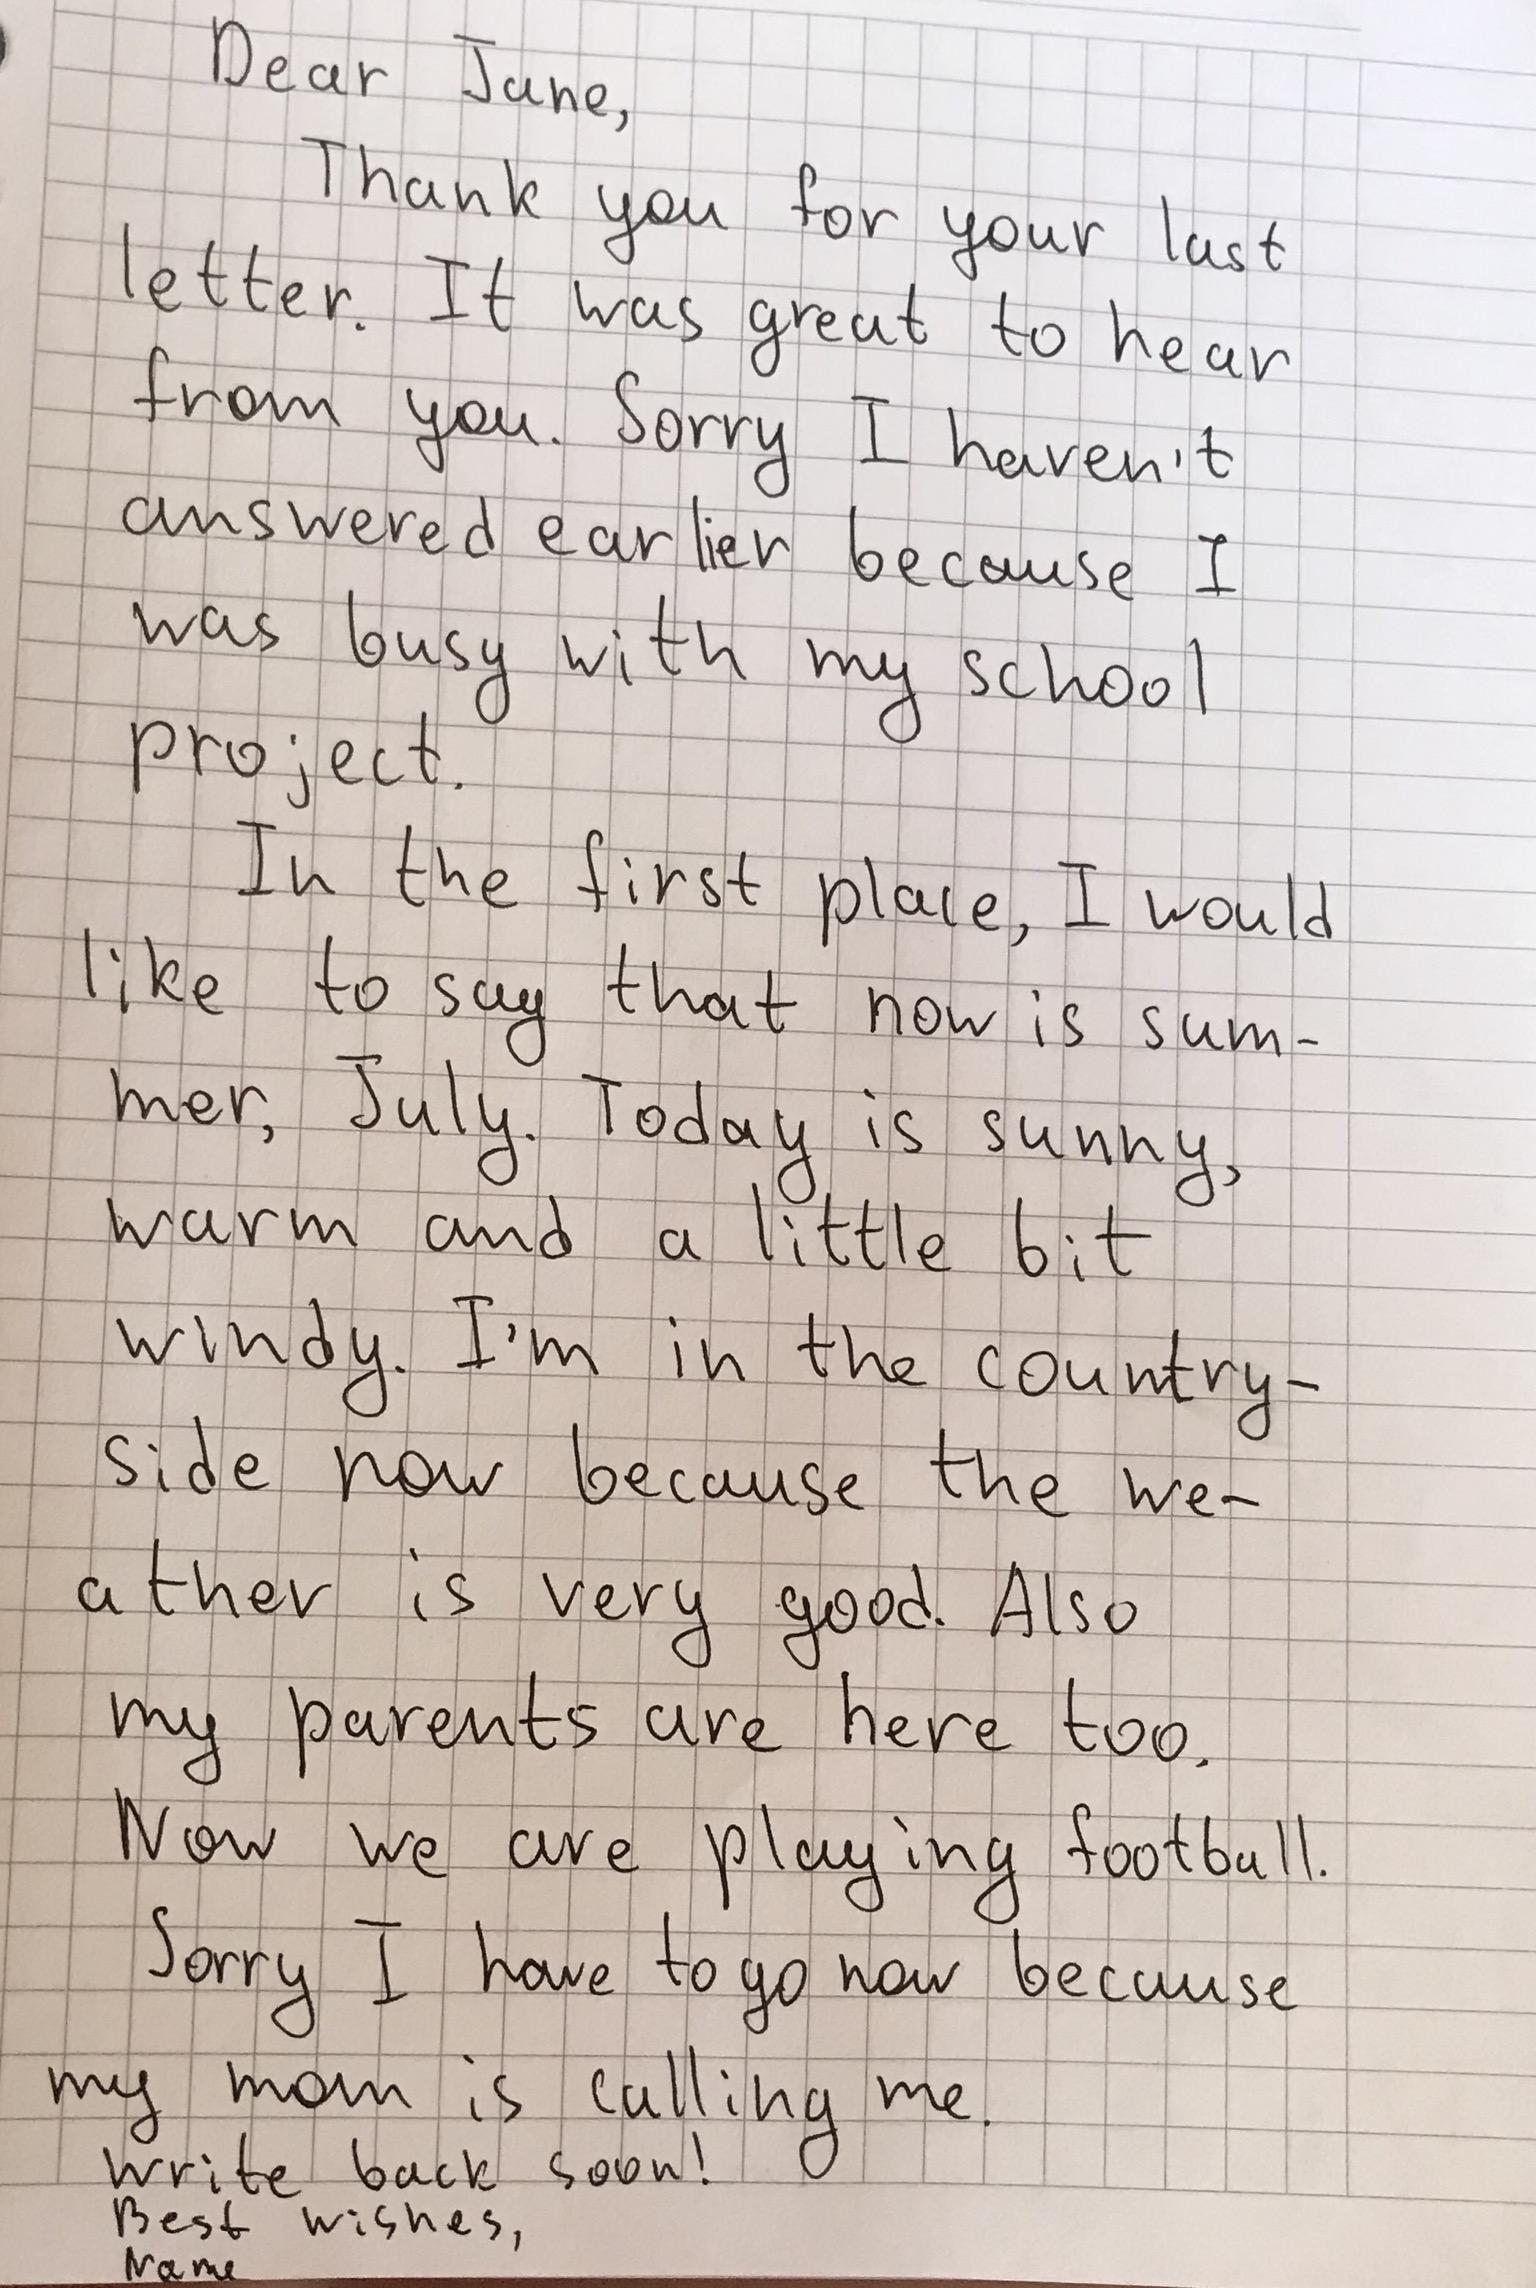 Dear Jane,
Thank you for your last
letter. It was great to hear
from you. Sorry I haven't
answered earlier because I
was busy with my school
project.
In the first place, I would
like to say that now is sum-
mer, July. Today is sunny,
warm and a little bit
windy. I'm in the country-
side now because the we-
ather is very good. Also
my parents are here too.
Now we are playing football.
Sorry I have to go now because
my mom is calling me.
Write back soon!
Best wishes,
Name